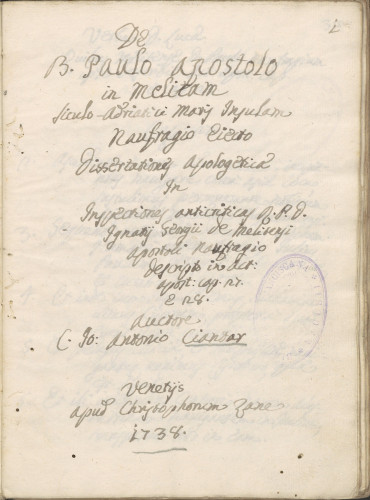 De
B. Paulo Apostolo
in Melitam
siculo-Adriatici Maris Insulam
Naufragio Eiecto
Dissertationes Apologeticæ
In
Inspectiones anticriticas R. P. D.
Ignatij Georgii de Melitensi
apostoli Naufragio
descripto in Act:
apost: cap. 27.
E 28.
Auctore
C. Io: Antonio Ciantar
Venetijs
apud Christophorum Zane
1738.